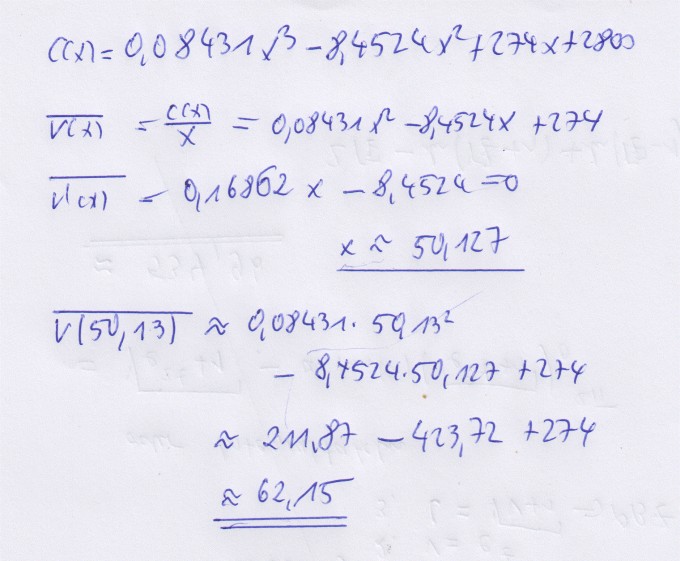 C(x) = 0,08431x³ - 8,4524x² + 274x + 2800
V(x) = C(x)/x = 0,08431x² - 8,4524x + 274
V'(x) = 0,16862 x - 8,4524 = 0
x ≈ 50,127
V(50,13) ≈ 0,08431 · 50,13²
- 8,4524 · 50,127 + 274
≈ 211,87 - 423,72 + 274
≈ 62,15